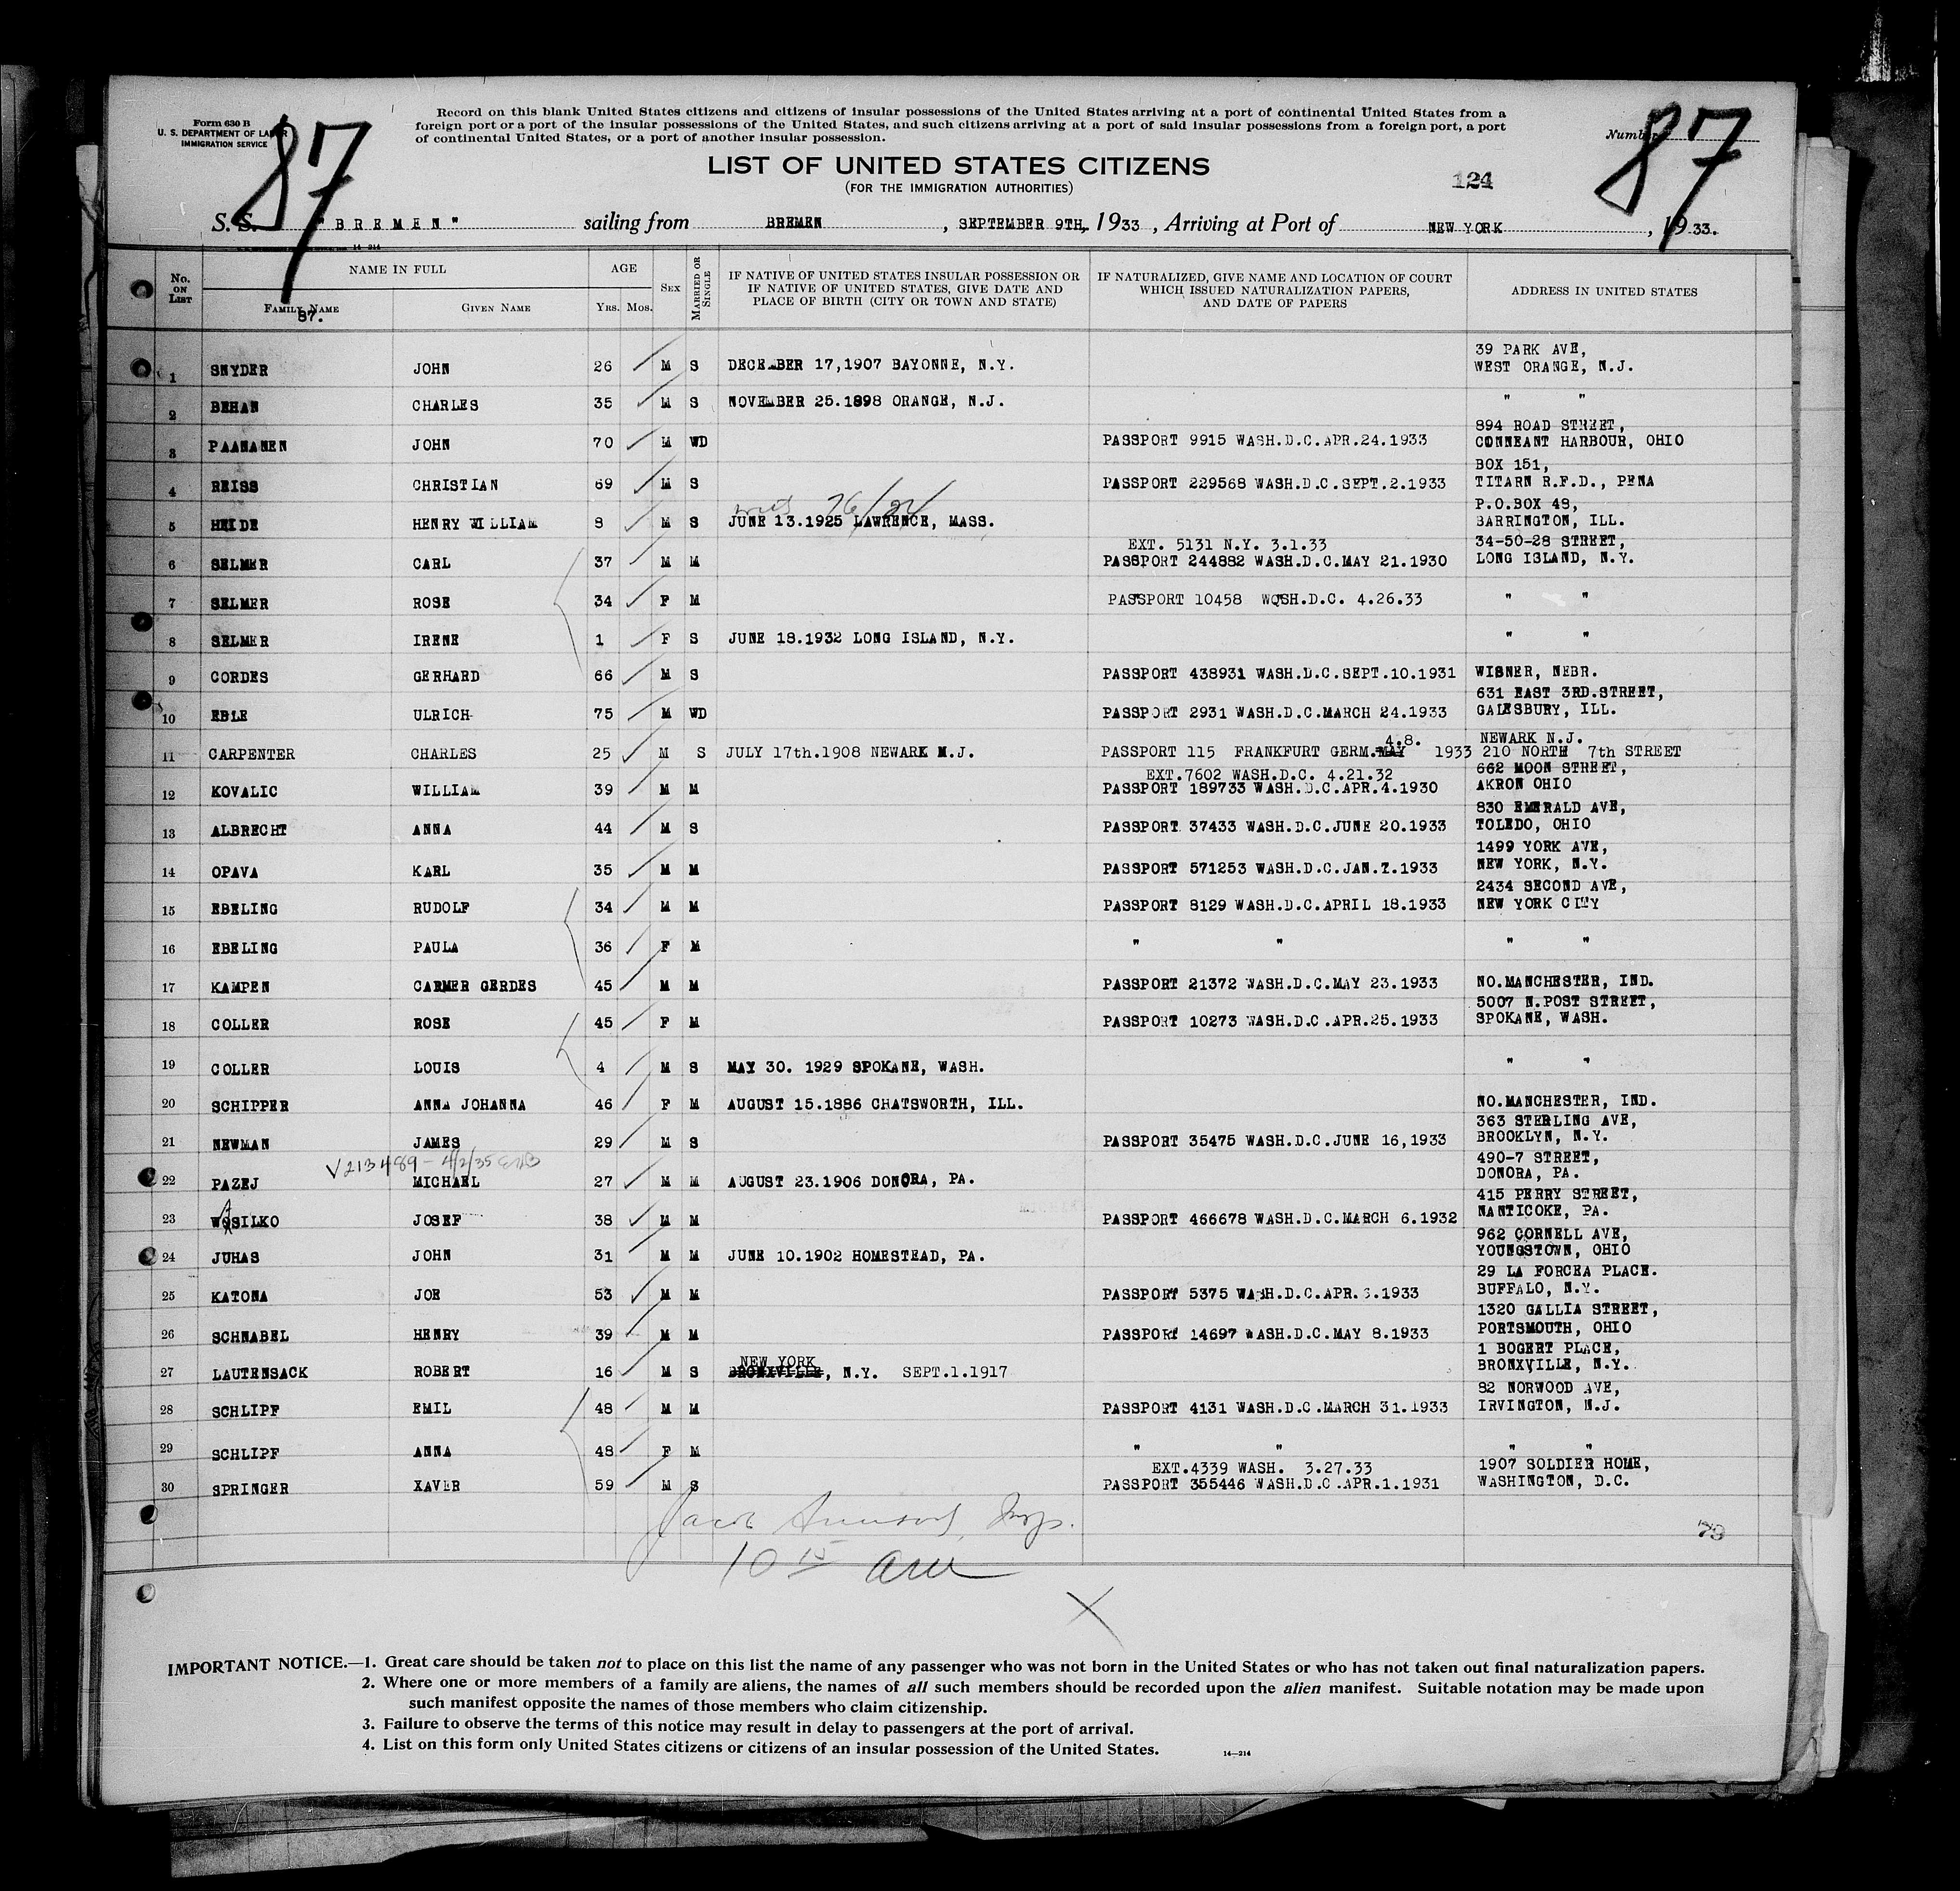 Form 630 B
U. S. DEPARTMENT OF LABOR
IMMIGRATION SERVICE
87
Record on this blank United States citizens and citizens of insular possessions of the United States arriving at a port of continental United States from a
foreign port or a port of the insular possessions of the United States, and such citizens arriving at a port of said insular possessions from a foreign port, a port
of continental United States, or a port of another insular possession.
Number 87
LIST OF UNITED STATES CITIZENS
(FOR THE IMMIGRATION AUTHORITIES)
124
S. S. "BREMEN" sailing from BREMEN, SEPTEMBER 9TH, 1933, Arriving at Port of NEW YORK, 1933.
14-214
No. ON LIST
NAME IN FULL
FAMILY NAME
87.
GIVEN NAME
AGE
YRS. MOS.
SEX
MARRIED OR SINGLE
IF NATIVE OF UNITED STATES INSULAR POSSESSION OR
IF NATIVE OF UNITED STATES, GIVE DATE AND
PLACE OF BIRTH (CITY OR TOWN AND STATE)
IF NATURALIZED, GIVE NAME AND LOCATION OF COURT
WHICH ISSUED NATURALIZATION PAPERS,
AND DATE OF PAPERS
ADDRESS IN UNITED STATES
39 PARK AVE,
1 SNYDER JOHN 26 M S DECEMBER 17,1907 BAYONNE, N.Y. WEST ORANGE, N.J.
2 BEHAN CHARLES 35 M S NOVEMBER 25.1898 ORANGE, N.J. " "
894 ROAD STREET,
3 PAANANEN JOHN 70 M WD PASSPORT 9915 WASH.D.C.APR.24.1933 CONNEANT HARBOUR, OHIO
BOX 151,
4 REISS CHRISTIAN 69 M S PASSPORT 229568 WASH.D.C.SEPT.2.1933 TITARN R.F.D., PENA
P.O.BOX 48,
5 HEIDE HENRY WILLIAM 8 M S JUNE 13.1925 LAWRENCE, MASS. BARRINGTON, ILL.
EXT. 5131 N.Y. 3.1.33 34-50-28 STREET,
6 SELMER CARL 37 M M PASSPORT 244882 WASH.D.C.MAY 21.1930 LONG ISLAND, N.Y.
7 SELMER ROSE 34 F M PASSPORT 10458 WQSH.D.C. 4.26.33 " "
8 SELMER IRENE 1 F S JUNE 18.1932 LONG ISLAND, N.Y. " "
9 CORDES GERHARD 66 M S PASSPORT 438931 WASH.D.C.SEPT.10.1931 WISNER, NEBR.
631 EAST 3RD.STREET,
10 EBLE ULRICH 75 M WD PASSPORT 2931 WASH.D.C.MARCH 24.1933 GALESBURY, ILL.
4.8. NEWARK N.J.
11 CARPENTER CHARLES 25 M S JULY 17th.1908 NEWARK N.J. PASSPORT 115 FRANKFURT GERM.MAY 1933 210 NORTH 7th STREET
EXT.7602 WASH.D.C. 4.21.32 662 MOON STREET,
12 KOVALIC WILLIAM 39 M M PASSPORT 189733 WASH.D.C.APR.4.1930 AKRON OHIO
830 EMERALD AVE,
13 ALBRECHT ANNA 44 M S PASSPORT 37433 WASH.D.C.JUNE 20.1933 TOLEDO, OHIO
1499 YORK AVE,
14 OPAVA KARL 35 M M PASSPORT 571253 WASH.D.C.JAN.7.1933 NEW YORK, N.Y.
2434 SECOND AVE,
15 EBELING RUDOLF 34 M M PASSPORT 8129 WASH.D.C.APRIL 18.1933 NEW YORK CITY
16 EBELING PAULA 36 F M " " " "
17 KAMPEN CARMER GERDES 45 M M PASSPORT 21372 WASH.D.C.MAY 23.1933 NO.MANCHESTER, IND.
5007 N.POST STREET,
18 COLLER ROSE 45 F M PASSPORT 10273 WASH.D.C.APR.25.1933 SPOKANE, WASH.
19 COLLER LOUIS 4 M S MAY 30. 1929 SPOKANE, WASH. " "
20 SCHIPPER ANNA JOHANNA 46 F M AUGUST 15.1886 CHATSWORTH, ILL. NO.MANCHESTER, IND.
363 STERLING AVE,
21 NEWMAN JAMES 29 M S PASSPORT 35475 WASH.D.C.JUNE 16,1933 BROOKLYN, N.Y.
V213489 - 4/2/35 490-7 STREET,
22 PAZEJ MICHAEL 27 M M AUGUST 23.1906 DONORA, PA. DONORA, PA.
415 PERRY STREET,
23 WASILKO JOSEF 38 M M PASSPORT 466678 WASH.D.C.MARCH 6.1932 NANTICOKE, PA.
962 CORNELL AVE,
24 JUHAS JOHN 31 M M JUNE 10.1902 HOMESTEAD, PA. YOUNGSTOWN, OHIO
29 LA FORCEA PLACE.
25 KATONA JOE 53 M M PASSPORT 5375 WASH.D.C.APR.3.1933 BUFFALO, N.Y.
1320 GALLIA STREET,
26 SCHNABEL HENRY 39 M M PASSPORT 14697 WASH.D.C.MAY 8.1933 PORTSMOUTH, OHIO
NEW YORK 1 BOGERT PLACE,
27 LAUTENSACK ROBERT 16 M S BRONXVILLE, N.Y. SEPT.1.1917 BRONXVILLE, N.Y.
82 NORWOOD AVE,
28 SCHLIPF EMIL 48 M M PASSPORT 4131 WASH.D.C.MARCH 31.1933 IRVINGTON, N.J.
29 SCHLIPF ANNA 48 F M " " " "
EXT.4339 WASH. 3.27.33 1907 SOLDIER HOME,
30 SPRINGER XAVER 59 M S PASSPORT 355446 WASH.D.C.APR.1.1931 WASHINGTON, D.C.
Jacob Insp.
73
10 15 am
X
IMPORTANT NOTICE.—1. Great care should be taken not to place on this list the name of any passenger who was not born in the United States or who has not taken out final naturalization papers.
2. Where one or more members of a family are aliens, the names of all such members should be recorded upon the alien manifest. Suitable notation may be made upon
such manifest opposite the names of those members who claim citizenship.
3. Failure to observe the terms of this notice may result in delay to passengers at the port of arrival.
4. List on this form only United States citizens or citizens of an insular possession of the United States.
14—214